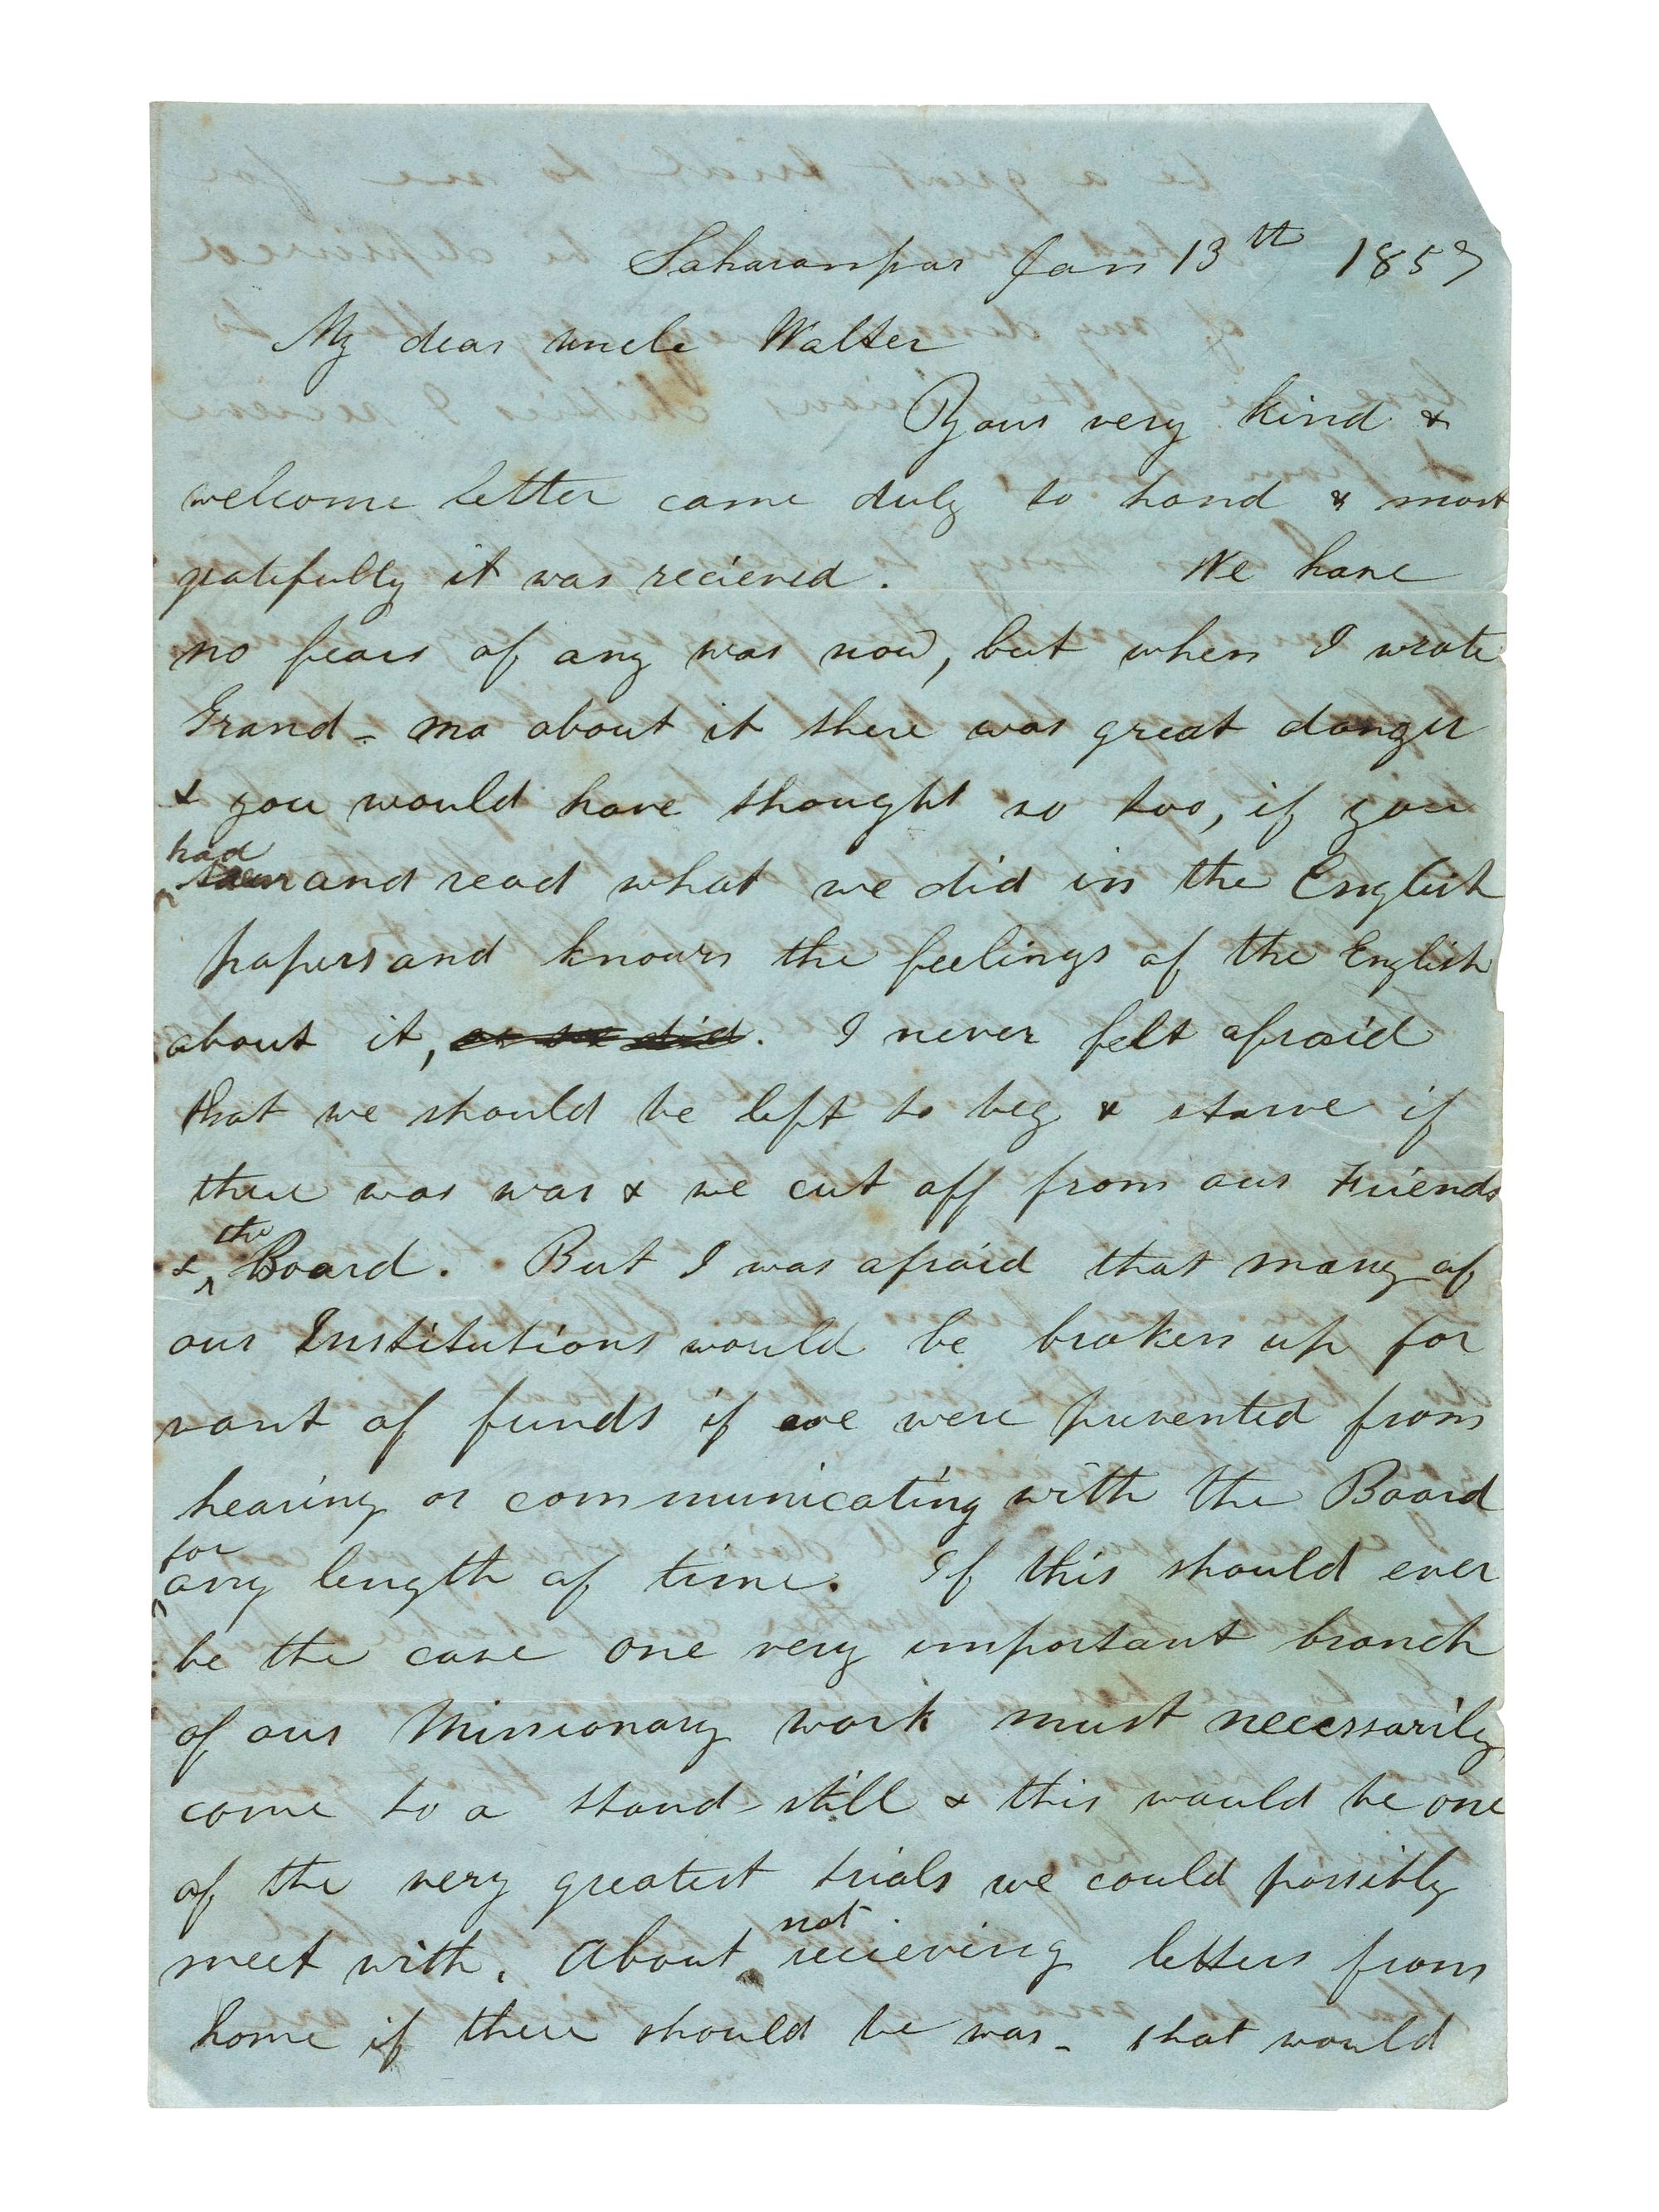 Saharanpur Jan 13th 1857
My dear uncle Walter
Your very kind &
welcome letter came duly to hand & most
gratefully it was recieved. We have
no fears of any war now, but when I wrote
Grand-ma about it there was great danger
& you would have thought so too, if you
had
and read what we did in the English
papers and known the feelings of the English
about it, as we did. I never felt afraid
that we should be left to beg & starve if
there was war & we cut off from our Friends
& the Board. But I was afraid that many of
our Institutions would be broken up for
want of funds if we were prevented from
hearing or communicating with the Board
for any length of time. If this should ever
be the case one very important branch
of our Missionary work must necessarily
come to a stand-still & this would be one
of the very greatest trials we could possibly
meet with. About not recieving letters from
home if there should be war - that would